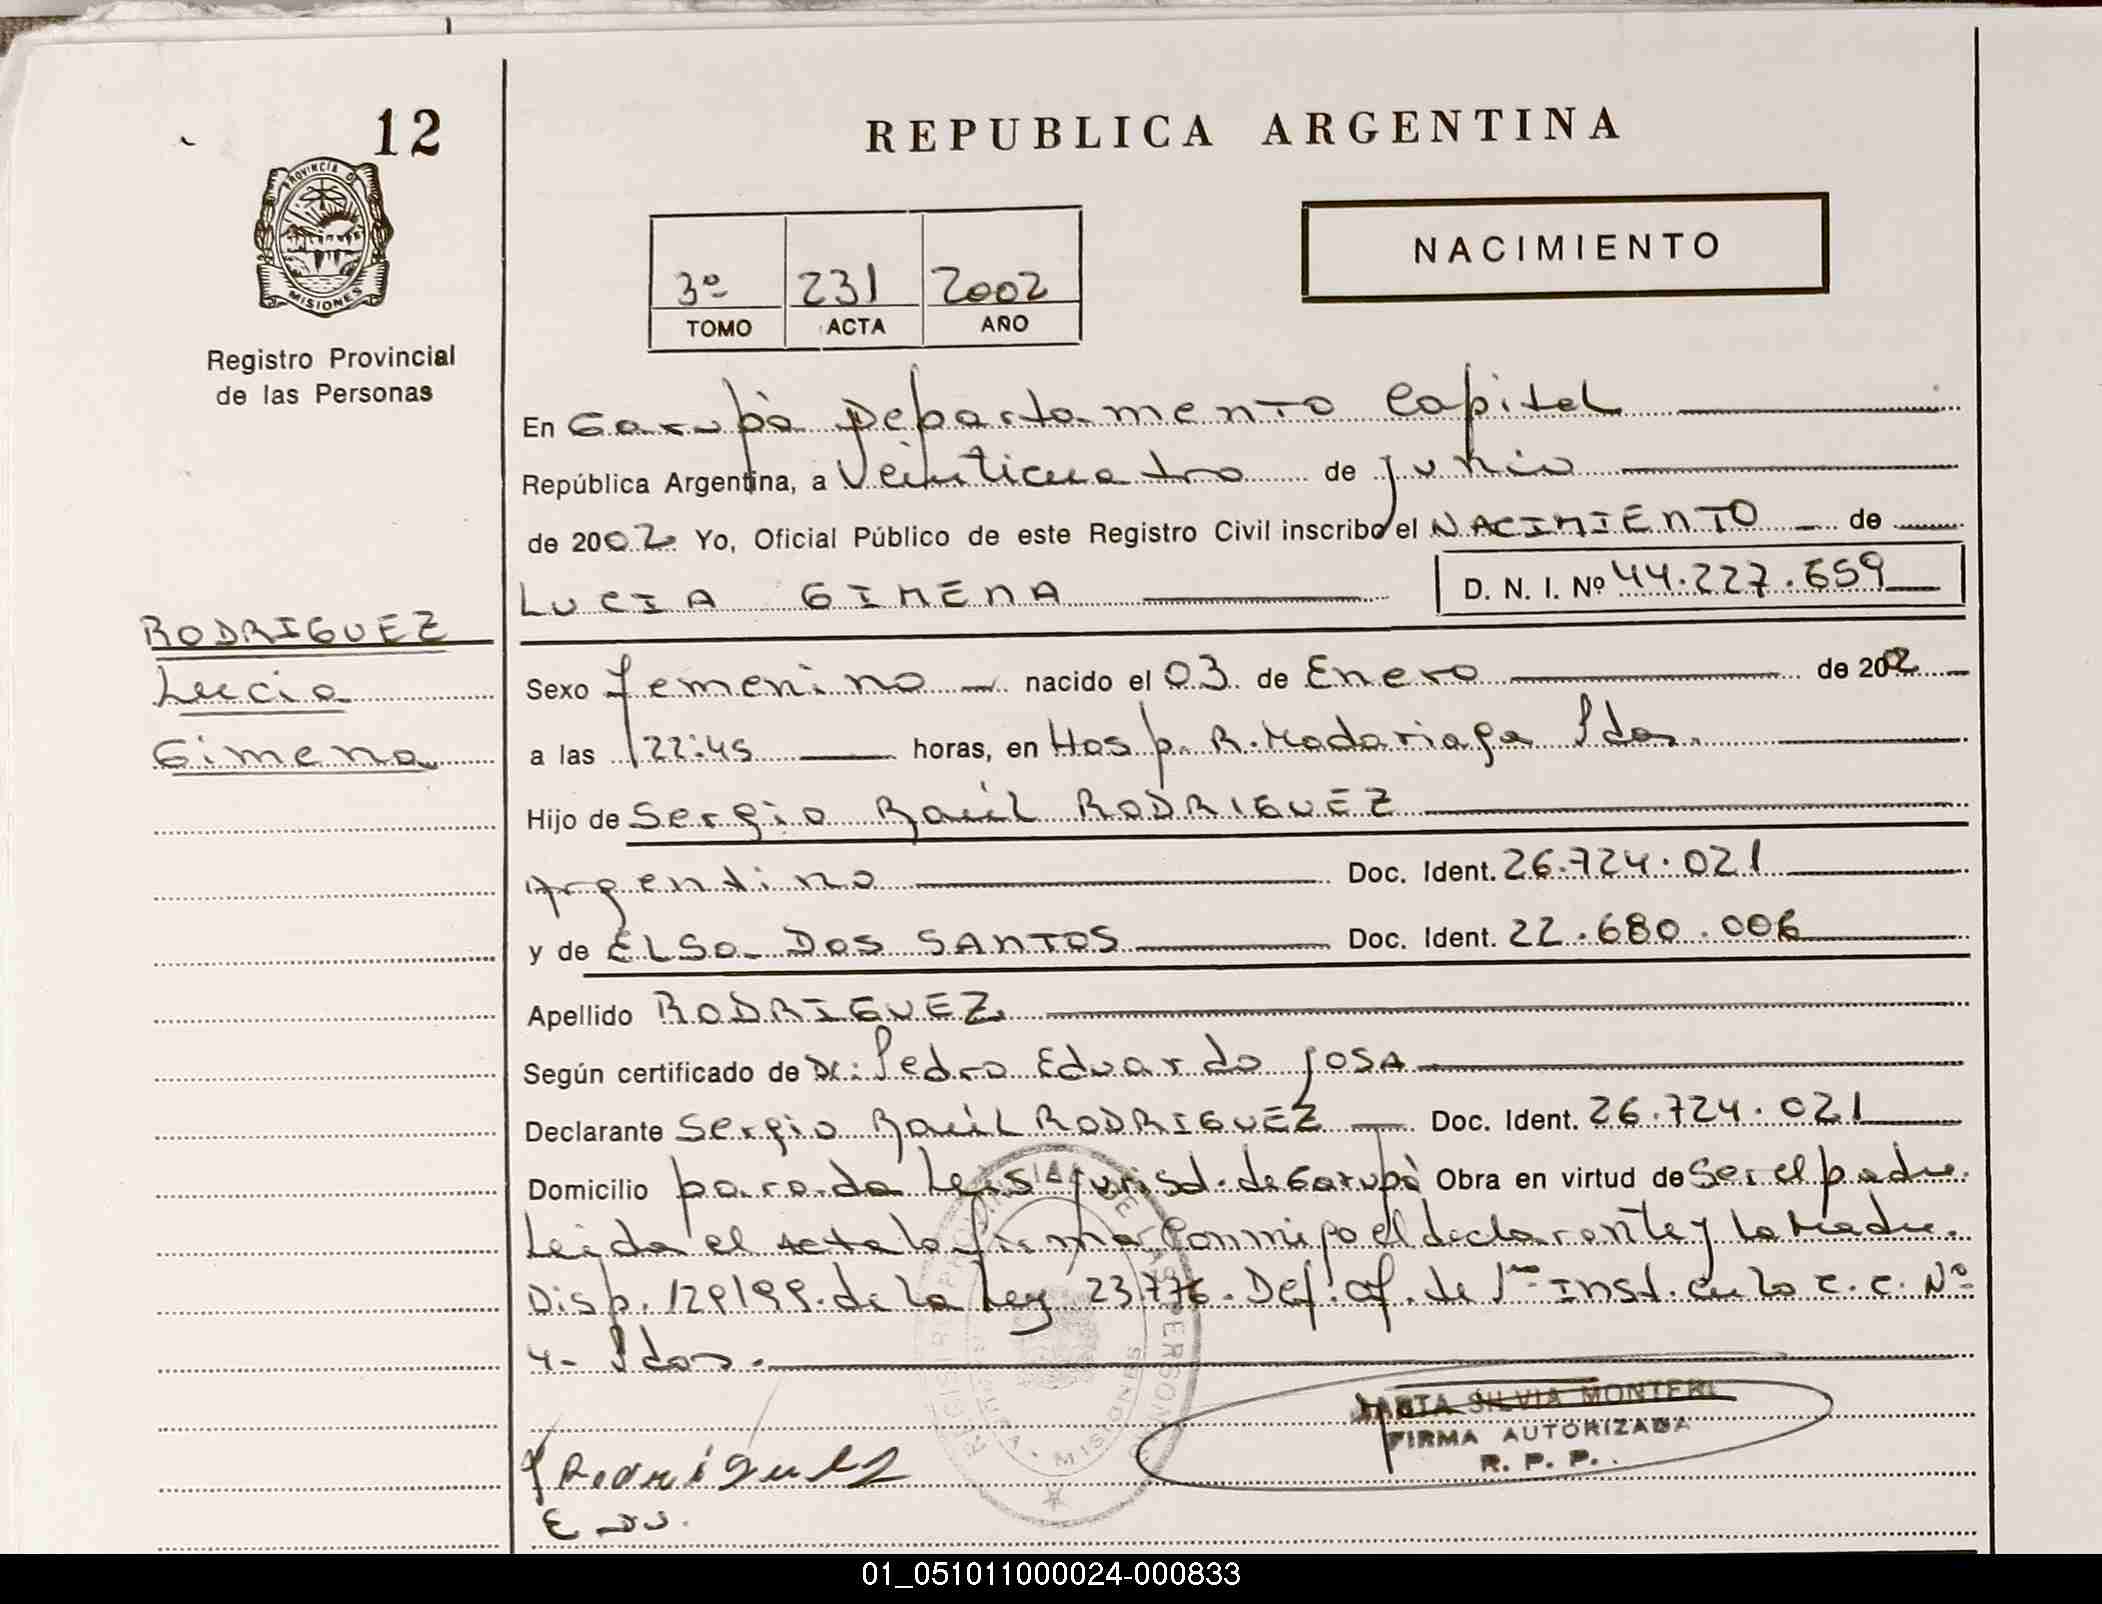 12
REPUBLICA ARGENTINA
PROVINCIA DE
MISIONES
Registro Provincial
de las Personas
3º 231 2002
TOMO ACTA AÑO
NACIMIENTO
En Garupà Departamento Capital
República Argentina, a Veinticuatro de Junio
de 2002 Yo, Oficial Público de este Registro Civil inscribo el NACIMIENTO de
LUCIA GIMENA D. N. I. Nº 44.227.659
RODRIGUEZ
Lucia
Gimena
Sexo femenino nacido el 03 de Enero de 2002
a las 22:45 horas, en Hosp. R. Madariaga Pdas.
Hijo de Sergio Raúl RODRIGUEZ
Argentino Doc. Ident. 26.724.021
y de ELSA DOS SANTOS Doc. Ident. 22.680.006
Apellido RODRIGUEZ
Según certificado de Dr: Pedro Eduardo JOSA
Declarante Sergio Raúl RODRIGUEZ Doc. Ident. 26.724.021
Domicilio parada Leis jurisd. de Garupà Obra en virtud de Ser el padre.
Leida el Acta la firma Conmigo el declarante y la Madre.
Disp. 129/99. de la Ley 23.776. Def. of. de 1ra Inst. en lo C. C. Nº
4- Pdas.
MARTA SILVIA MONTERO
FIRMA AUTORIZADA
R. P. P.
Rodriguez
E DS.
01_051011000024-000833